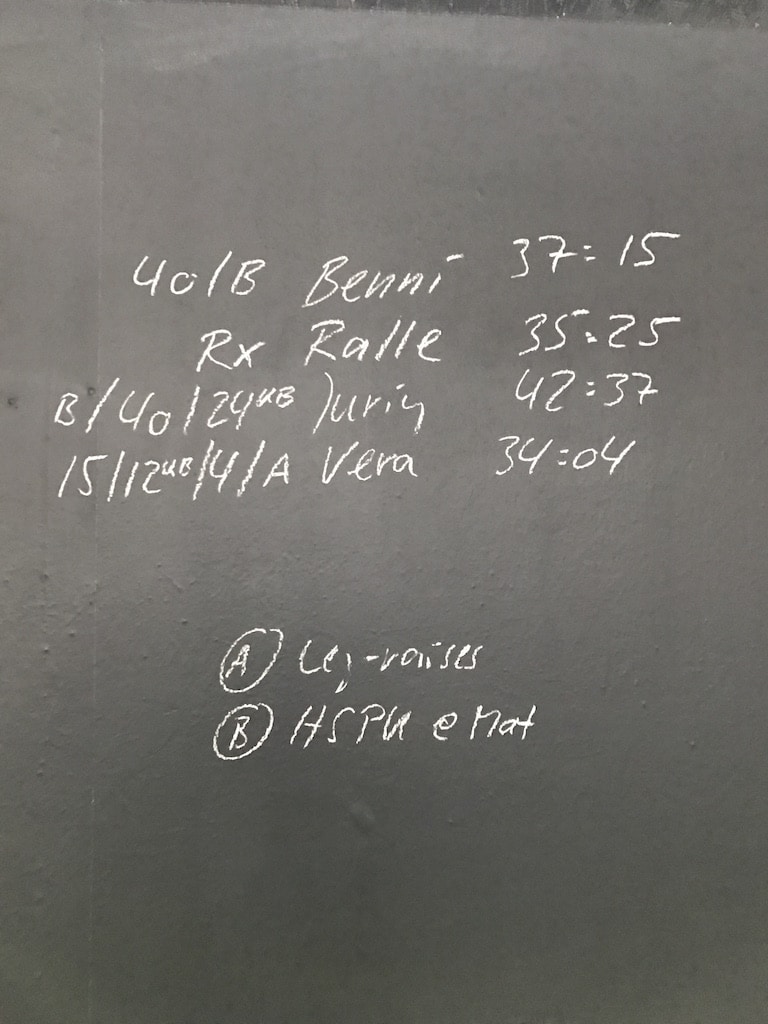 40/B Benni 37:15
Rx Ralle 35:25
B/40/24KB Juriy 42:37
15/12KB/4/A Vera 34:04
A Leg-raises
B HSPU e Mat